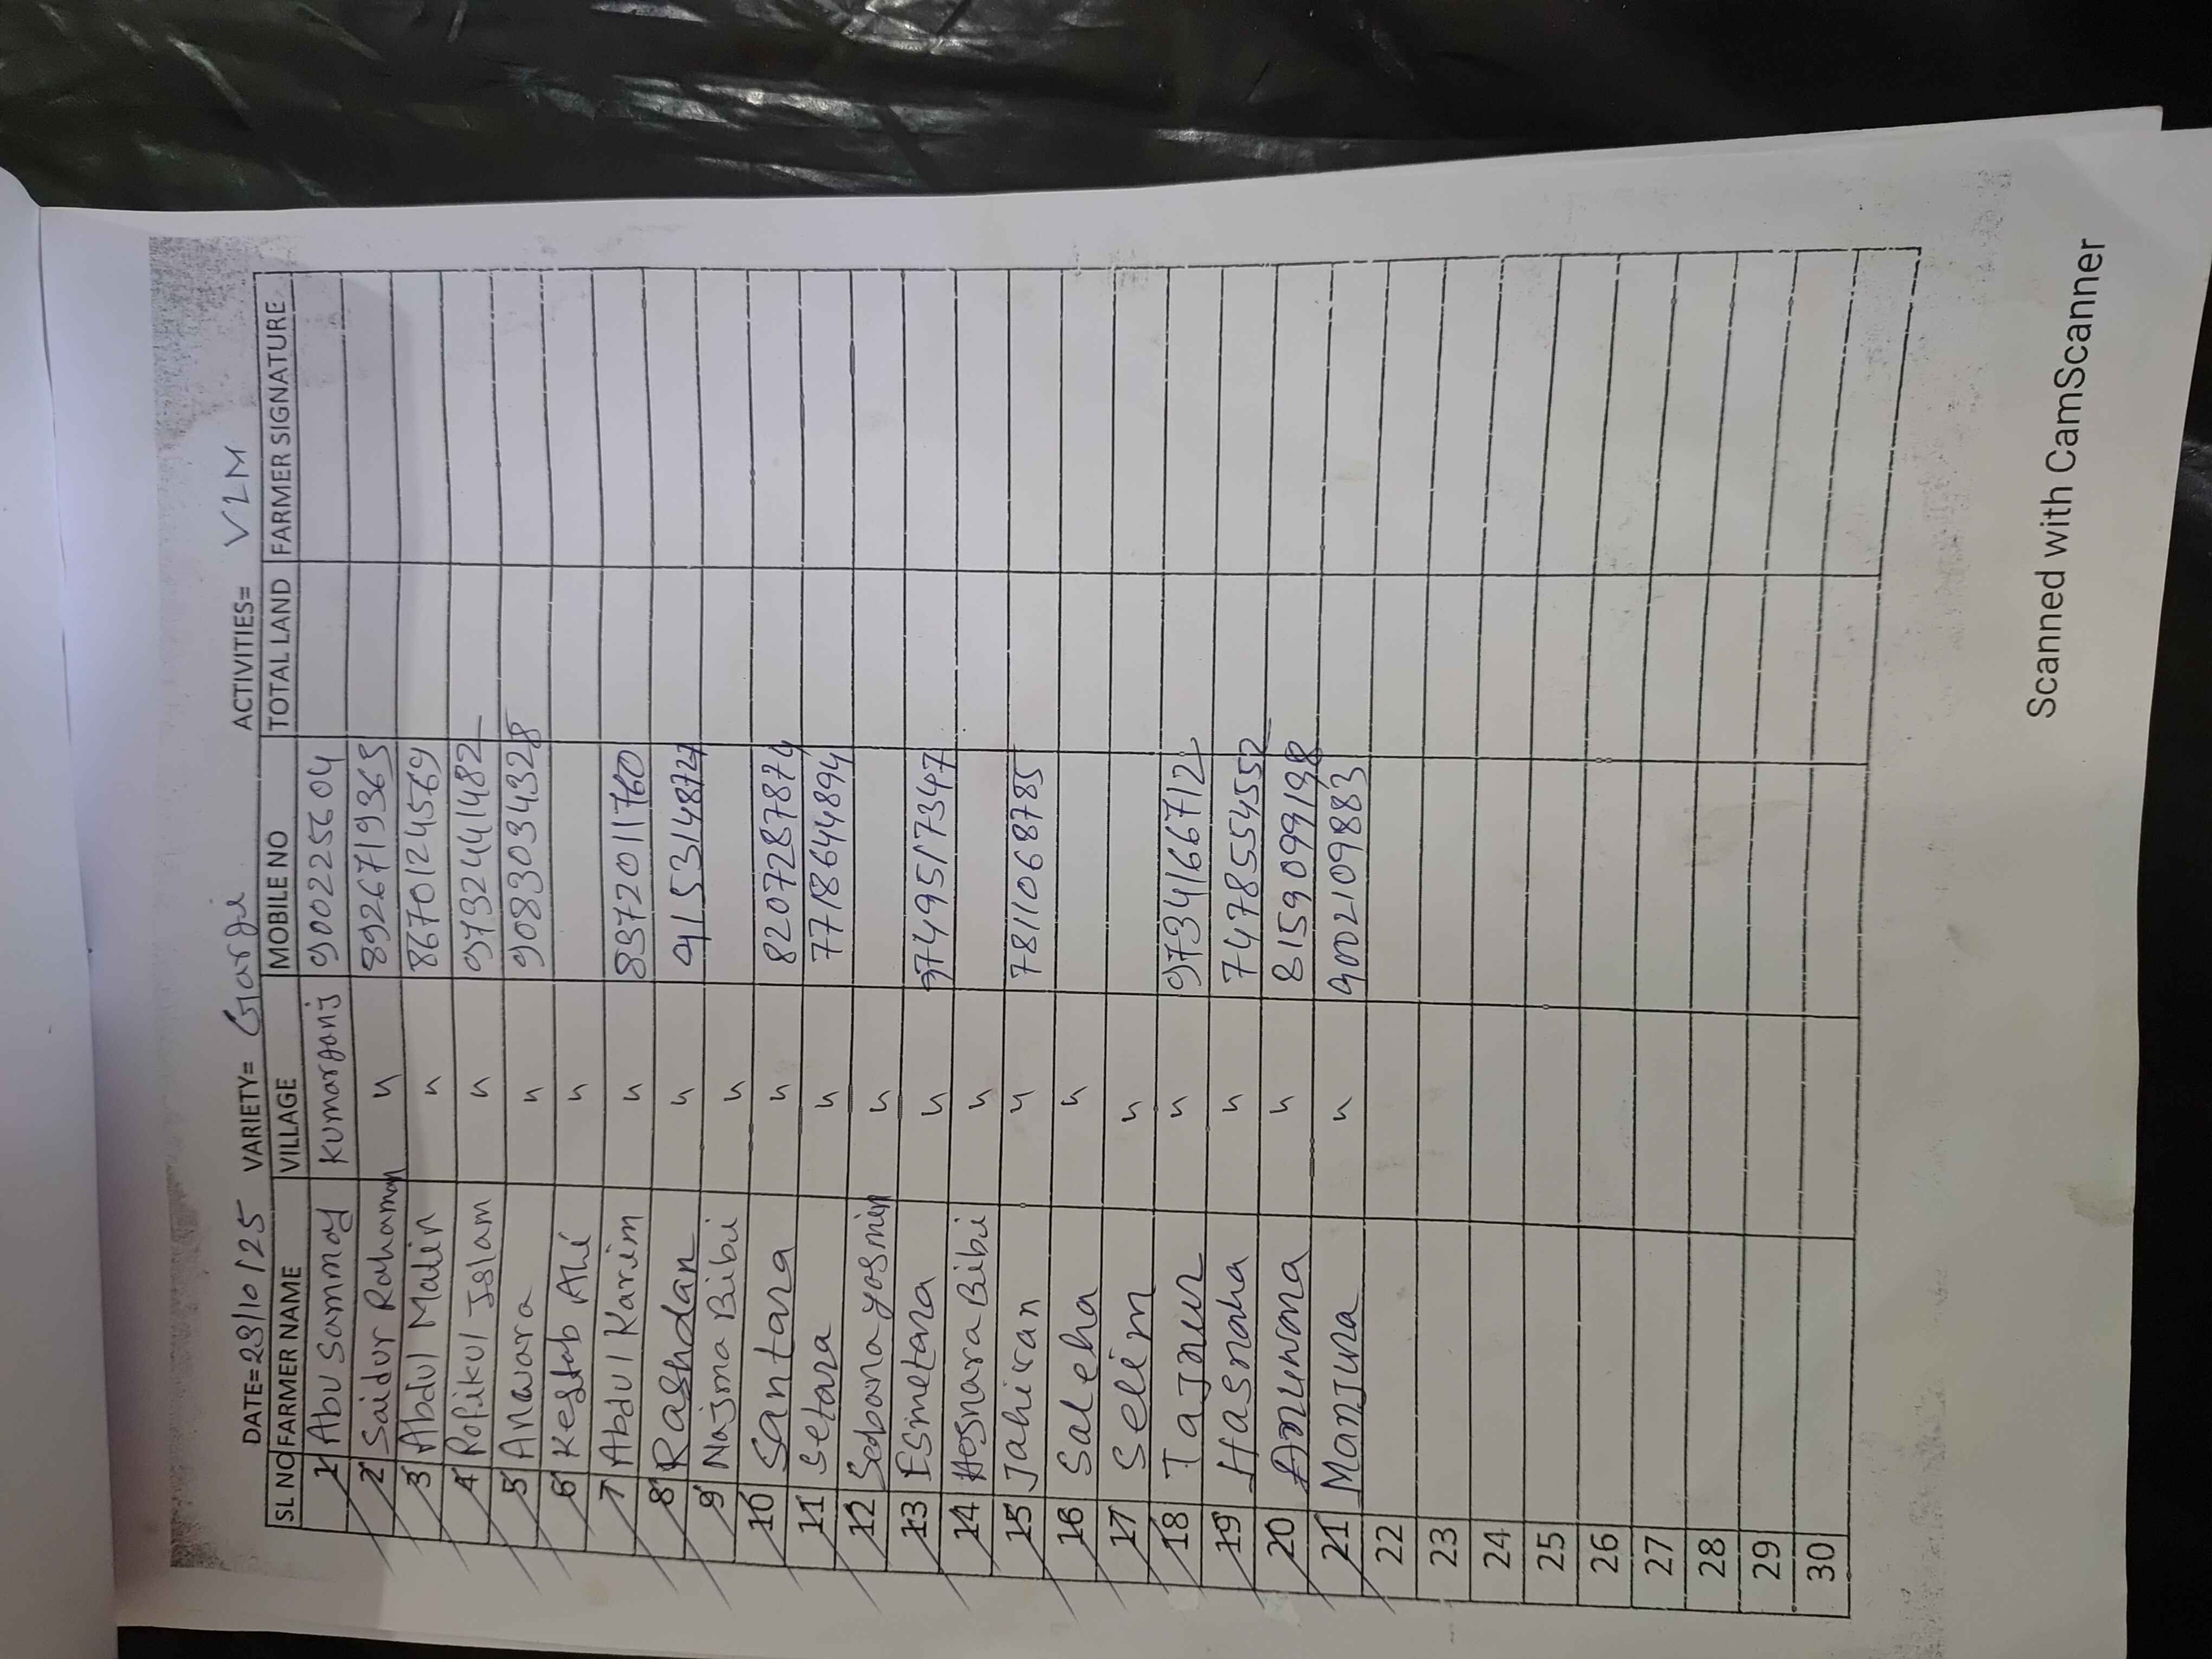 DATE=28/10/25 VARIETY= Gargi ACTIVITIES= V2M
SL NO FARMER NAME VILLAGE MOBILE NO TOTAL LAND FARMER SIGNATURE
1 Abu Sammay Kumarganj 9002255604
2 Saidur Rahaman " 8926719365
3 Abdul Malir " 8670124569
4 Rofikul Islam " 9732441482
5 Anawara " 9083034328
6 Kestab Ali "
7 Abdul Karim " 8372011760
8 Rashodan " 9153148727
9 Najma Bibi "
10 Santara " 8207287874
11 Setara " 7718644894
12 Sabana yosmin "
13 Esmetara " 9749517347
14 Hosnara Bibi "
15 Jahiran " 7811068785
16 Saleha "
17 Selim "
18 Tajnur " 9734166712
19 Hasnaha " 7478554552
20 " 8159099198
21 Manjura " 9002109883
22
23
24
25
26
27
28
29
30
Scanned with CamScanner